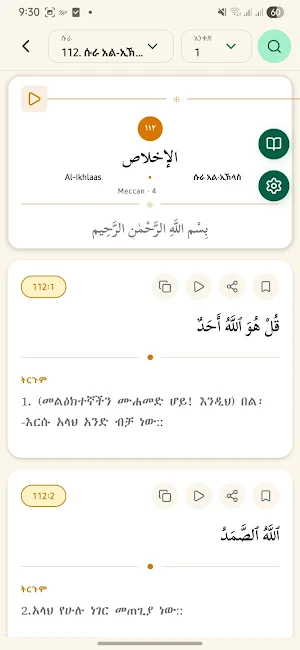 9:30
60
ሱራ
112. ሱራ አል-ኢኽ...
አንቀጽ
1
١١٢
الإخلاص
Al-Ikhlaas
ሱራ አል-ኢኽላስ
Meccan · 4
بِسْمِ اللَّهِ الرَّحْمَٰنِ الرَّحِيمِ
112:1
قُلْ هُوَ ٱللَّهُ أَحَدٌ
ትርጉም
1. (መልዕክተኛችን ሙሐመድ ሆይ! እንዲህ) በል፡
-እርሱ አላህ አንድ ብቻ ነው::
112:2
ٱللَّهُ ٱلصَّمَدُ
ትርጉም
2.አላህ የሁሉ ነገር መጠጊያ ነው::